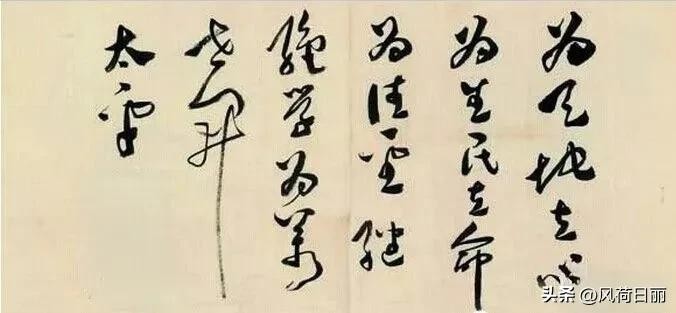 为天地立心
为生民立命
为往圣继
绝学为萬
世开
太平
头条 @风荷日丽